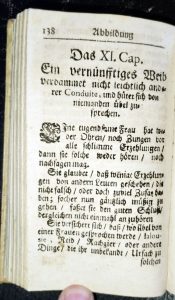 138 Abbildung
Das XI. Cap.
Ein vernünfftiges Weib
verdammet nicht leichtlich ande-
rer Conduite, und hütet sich von
niemanden übel zu
sprechen.
Eine tugendsame Frau hat we-
der Ohren / noch Zungen vor
alle schlimme Erzehlungen /
dann sie solche weder hören / noch
nachsagen mag.
Sie glaubet / daß wenige Erzehlun-
gen von andern Leuten geschehen / die
nicht falsch / oder doch zuviel Zusatz ha-
ben; sothaner nun gänzlich müßig zu
gehen / fasset sie den guten Schluß /
dergleichen nicht einmahl an zuhören
Sie versichert sich / daß / wo übel von
einer Frauen gesprochen werde /
Reid / Rachgier / oder andere
Dinge / die ihr unbekandt / Ursach zu
solchen